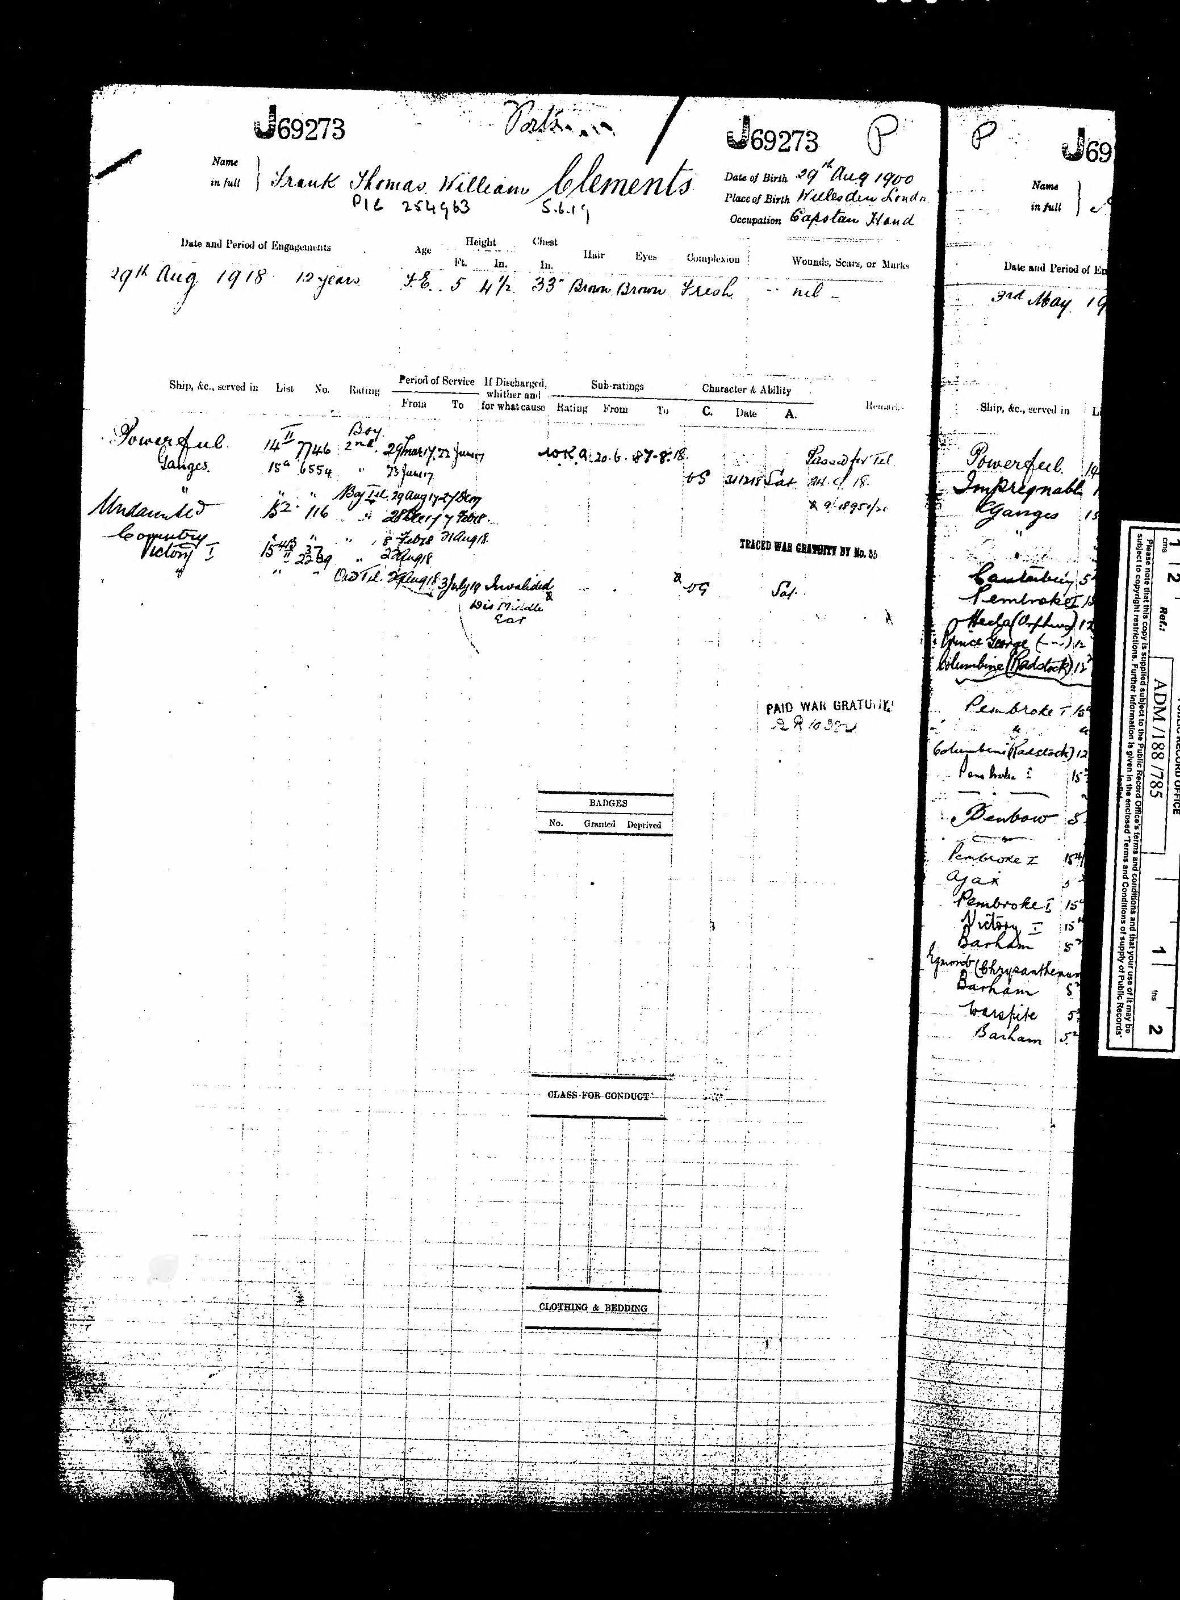 J69273
J69273 P
Name in full } Frank Thomas William Clements
P/C 254963 5.6.19
Date of Birth 29th Aug 1900
Place of Birth Willesden London
Occupation Capstan Hand
Date and Period of Engagements Age Height Ft. In. Chest In. Hair Eyes Complexion Wounds, Scars, or Marks
29th Aug 1918 12 years 5 4½ 33" Brown Brown Fresh nil
Ship, &c., served in List No. Rating Period of Service From To If Discharged, whither and for what cause Sub-ratings Rating From To Character & Ability C. Date A. Remarks
Powerful 14 II 7746 Boy 2nd 29 Mar 17 22 June 17 Passed for Tel
Ganges 15a 6554 " 23 June 17 VG 311218 Sat
" " " Boy Tel. 29 Aug 17 27 Dec 17
Undaunted 116 " 28 Dec 17 7 Feb 18
Coventry " " " 8 Feb 18 21 Aug 18
Victory I " 22 Aug 18
" " " Ord Tel. 29 Aug 18 3 July 19 Invalided VG Sat.
Dis Middle
Ear
TRACED WAR GRATUITY BY No. 55
PAID WAR GRATUITY
BADGES
No. Granted Deprived
CLASS FOR CONDUCT
CLOTHING & BEDDING
P J69
Name in full }
Date and Period of En
3rd May 19
Ship, &c., served in Li
Powerful 14
Impregnable 1
Ganges 15
"
Canterbury 5
Pembroke I 15
Hecla (Orpheus) 12
Prince George 12
Columbine (Paddock) 12
Pembroke I 15
"
Columbine (Paddock) 12
Pembroke I 15
Benbow 5
Pembroke I 15
Ajax 5
Pembroke I 15
Victory I 15
Barham 5
Egmont (Chrysanthemum
Barham 5
Warspite 5
Barham 5
PUBLIC RECORD OFFICE
cms 1 2 Ref.: ADM/188/785 1 ins 2
Please note that this copy is supplied subject to the Public Record Office's terms and conditions and that your use of it may be
subject to copyright restrictions. Further information is given in the enclosed 'Terms and Conditions of supply of Public Records'
leaflet.